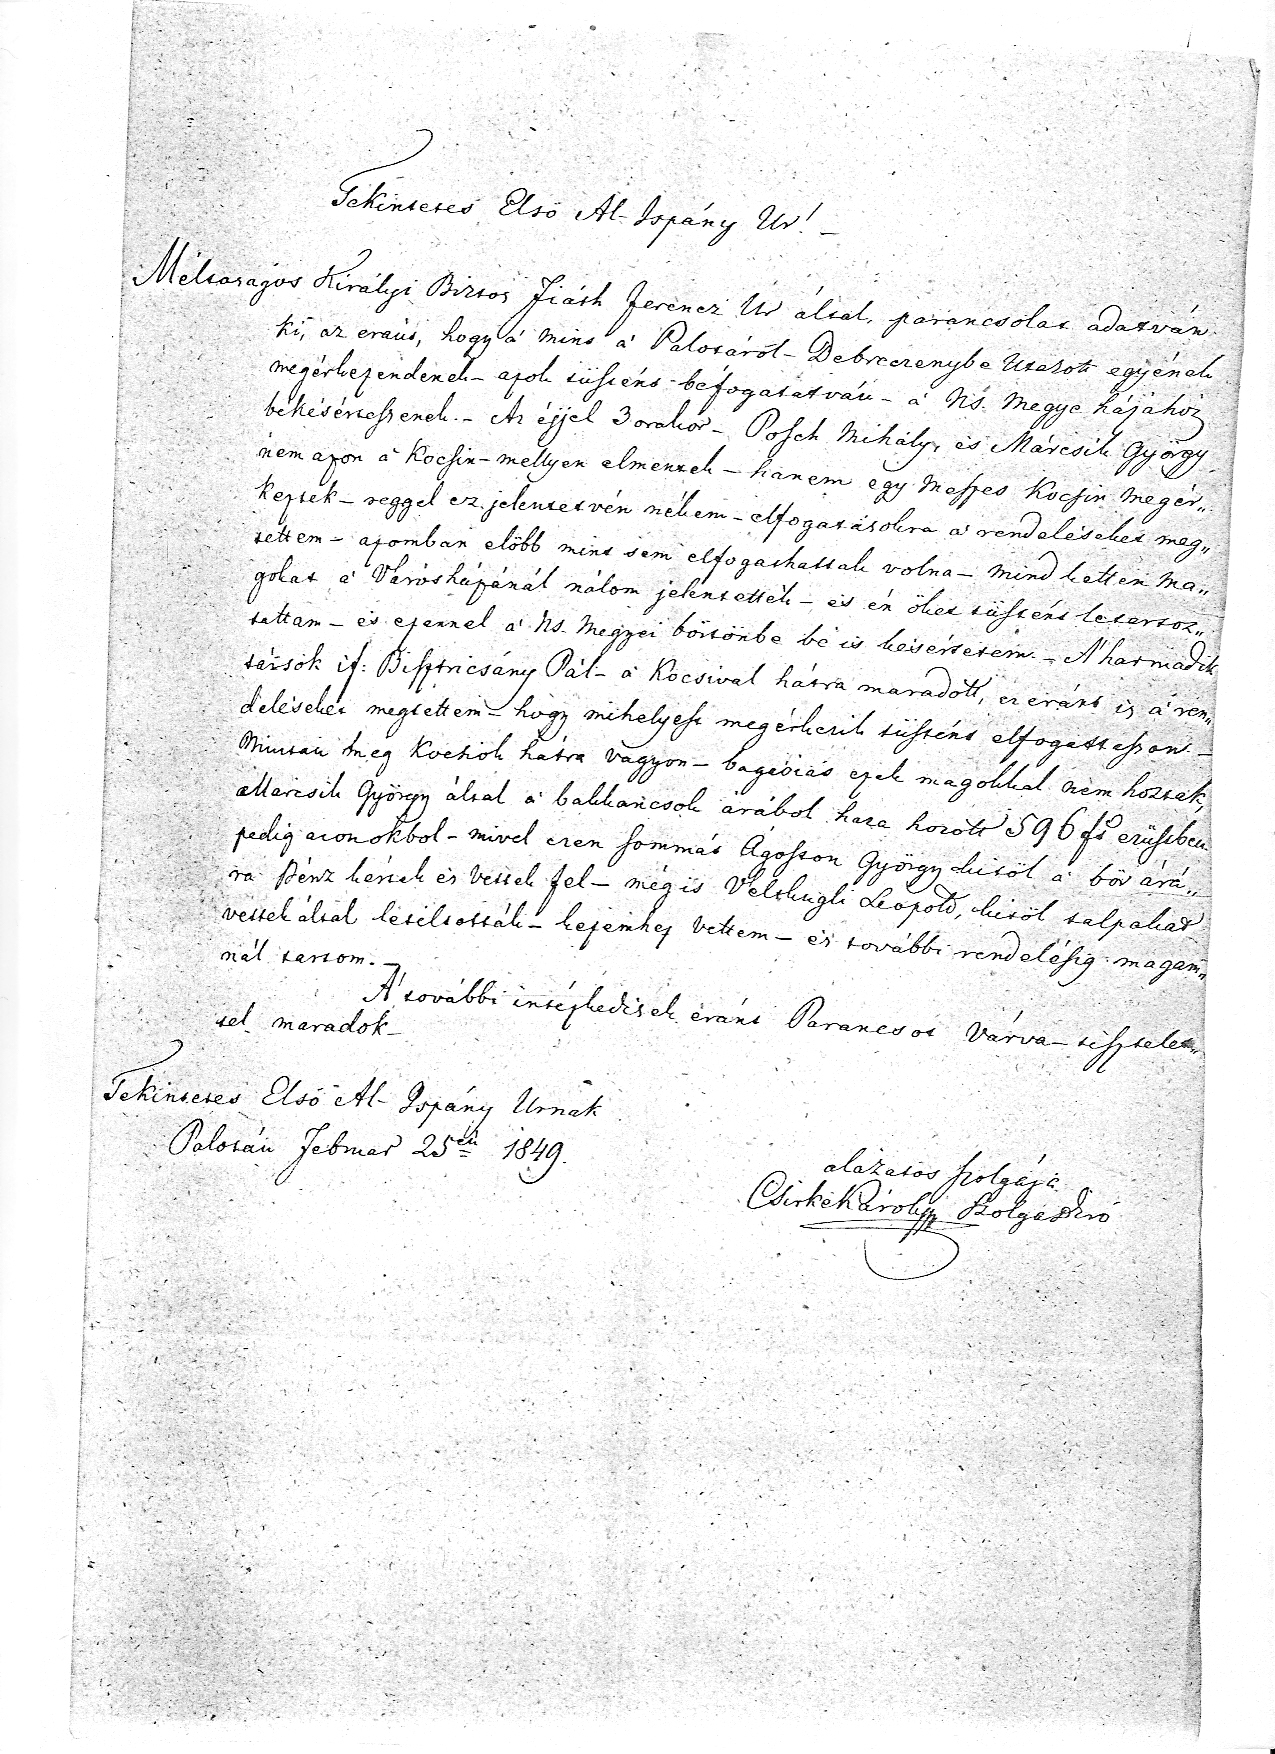 Tekintetes Első Al-Ispány Ur! –
Méltoságos Királyi Biztos Fiáth Ferencz Ur által, parancsolat adatván
ki, az eránt, hogy a' mint a' Palotáról – Debreczenybe Utazott egyének
megérkezendenek – azok tüstént béfogatatván – a' Ns. Megye házához
bekésértessenek. – Az éjjel 3 orakor – Posch Mihály, és Márcsik György
nem azon a' Kocsin – mellyen elmentek – hanem egy Meszes Kocsin megér„
keztek – reggel ez jelentetvén nékem – elfogatásokra a' rendeléseket meg„
tettem – azomban előbb mint sem elfogathattak volna – mind ketten ma„
gokat a' Városházánál nálom jelentették – és én őket tüstént letartoz„
tattam – és ezennel a' Ns. Megyei börtönbe bé is késértetem. – A' harmadik
társok if: Bisztricsány Pál – a' Kocsival hátra maradott, ez eránt is a' ren„
deléseket megtettem – hogy mihelyest megérkezik tüstént elfogattasson –
Miután meg Kocsiok hátra vagyon – bagásiás ezek magokkal nem hoztak,
Marcsik György által a' bakkancsok árábol haza hozott 596 ft ezüstben
pedig azon okbol – mivel ezen sommát Ágoston György kitöl a' bör árá„
ra Pénz kértek és vettek fel – még is Leopold, kitöl talpakat
vettek által letiltották – kezemhez vettem – és további rendelésig magam„
nál tartom. –
A' további intézkedések eránt Parancsot várva – tisztelet„
tel maradok –
Tekintetes Első Al-Ispány Urnak
Palotán Februar 25én 1849.
alázatos szolgája
Csirke Károly Szolgabiró